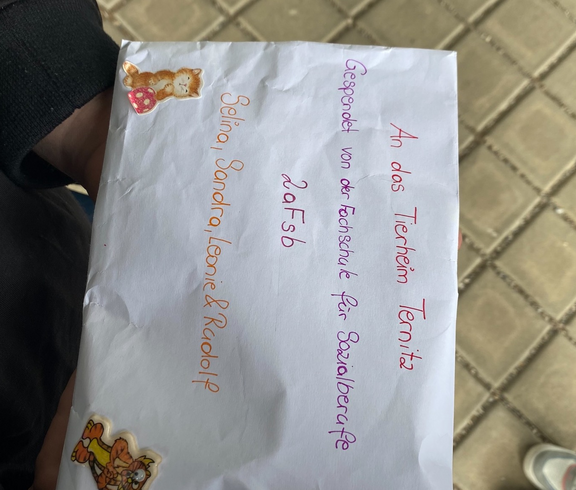 An das Tierheim Ternitz
Gespendet von der Fachschule für Sozialberufe
2aFsb
Selina, Sandra, Leonie & Radolf